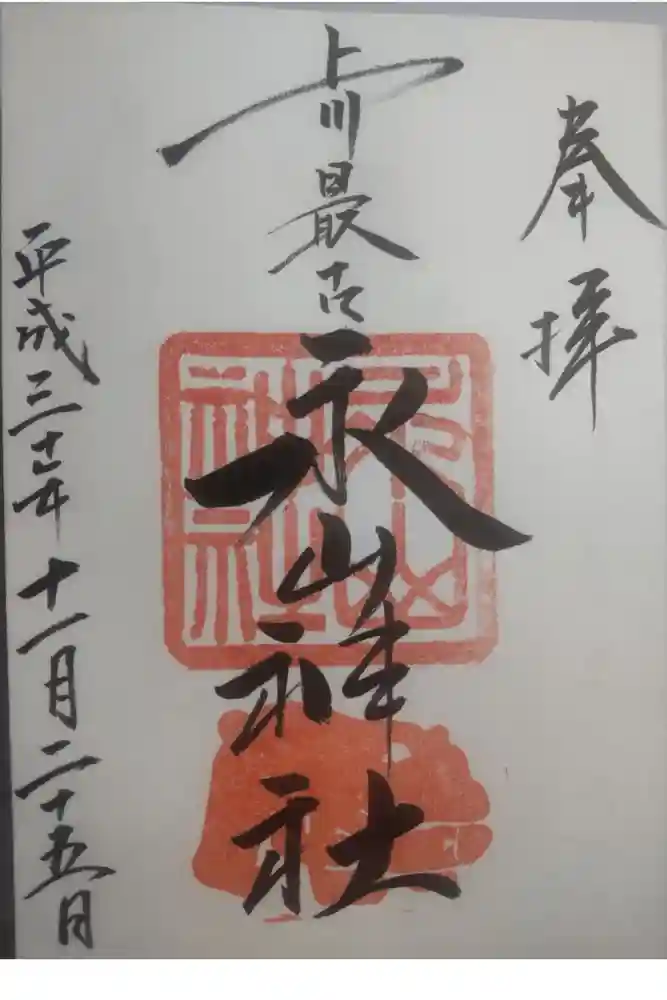 奉拝
上川最古
永山神社
平成三十年十一月二十五日
永山神社